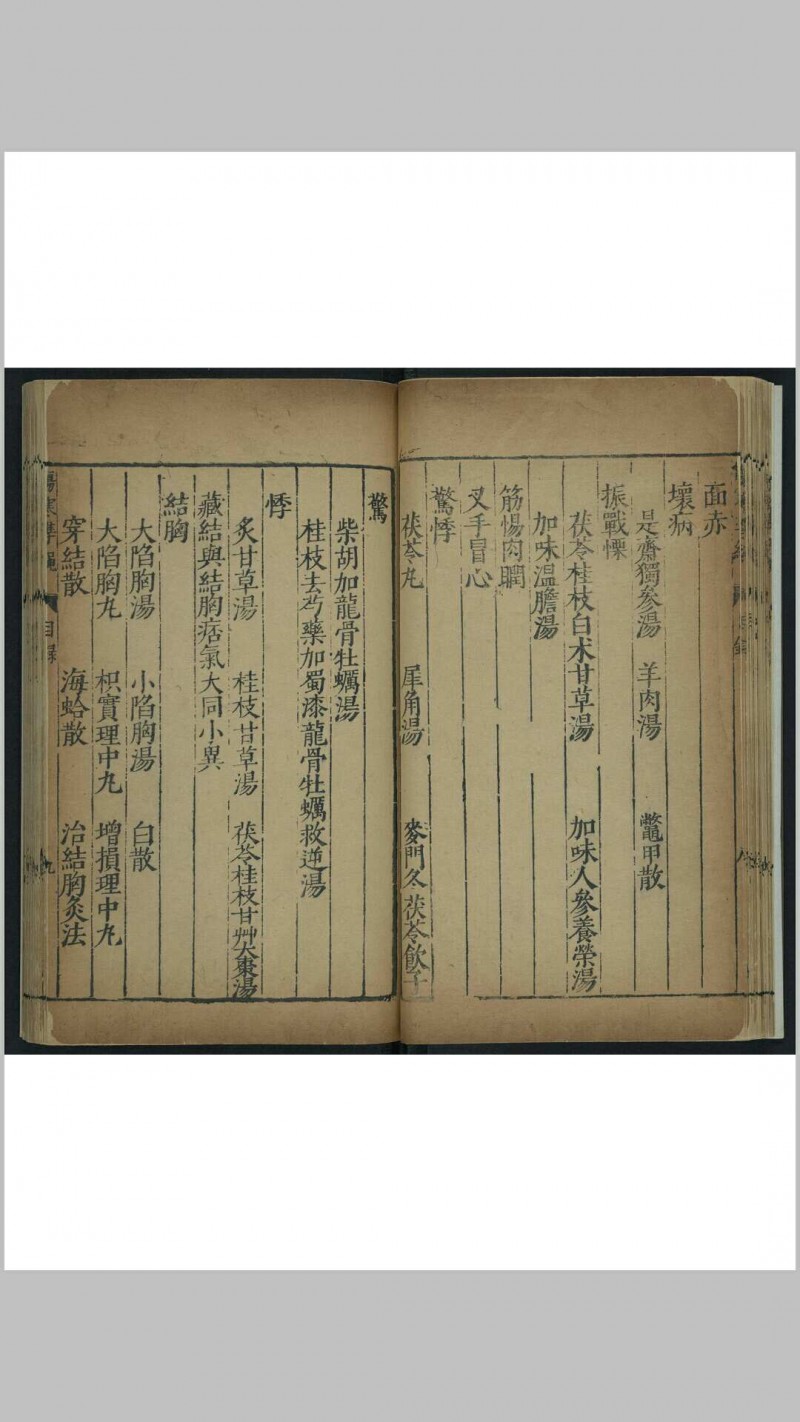 面赤
壞病
是齋獨參湯 羊肉湯 鼈甲散
振戰慄
茯苓桂枝白朮甘草湯 加味人參養榮湯
加味溫膽湯
筋惕肉瞤
叉手冒心
驚悸
茯苓丸 犀角湯 麥門冬茯苓飲子
驚
柴胡加龍骨牡蠣湯
桂枝去芍藥加蜀漆龍骨牡蠣救逆湯
悸
炙甘草湯 桂枝甘草湯 茯苓桂枝甘艸大棗湯
藏結與結胸痞氣大同小異
結胸
大陷胸湯 小陷胸湯 白散
大陷胸丸 枳實理中丸 增損理中丸
穿結散 海蛤散 治結胸灸法
傷寒準繩 目錄 九